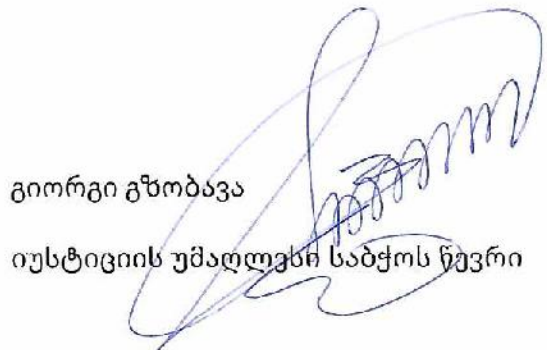 გიორგი გზობავა
იუსტიციის უმაღლესი საბჭოს წევრი